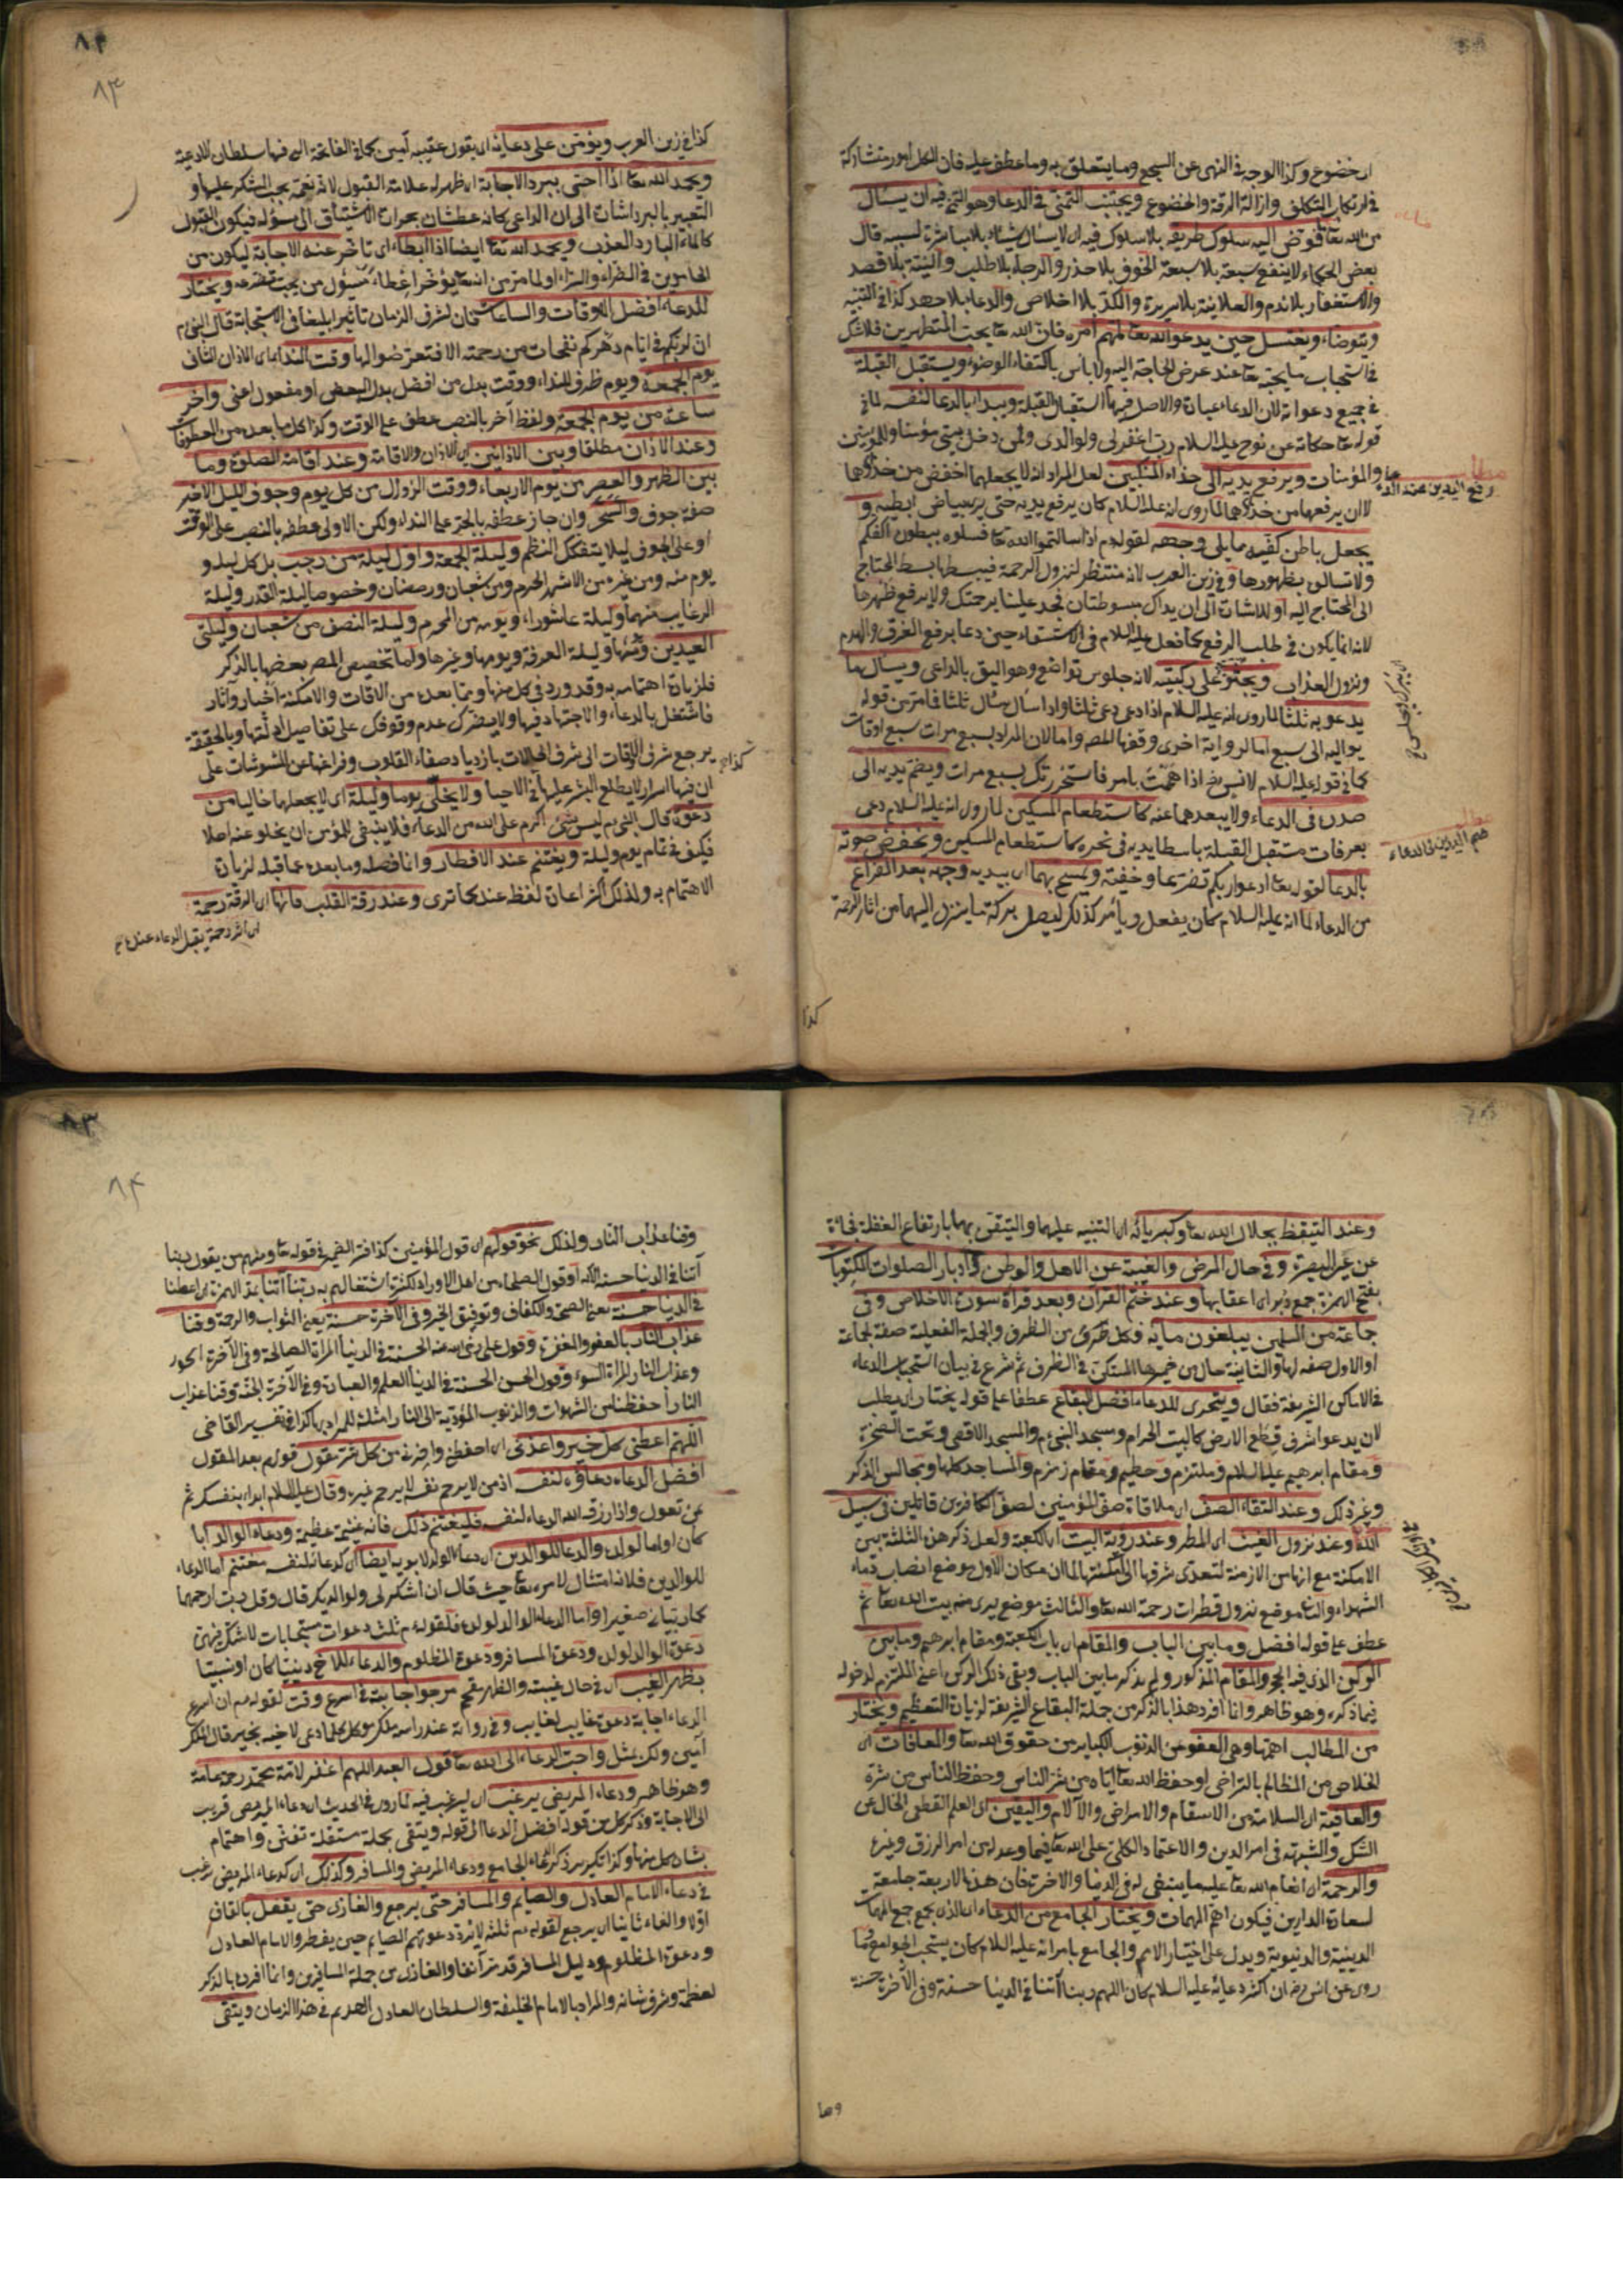 اى خضوع وكذا الوجه فى النهى عن السجع وما يتعلق به وما عطف عليه فان الكل امور متشاركة
فى ارتكاب التكلف وازالة الرقة والخضوع ويجتنب التمنى فى الدعاء وهو التمنى فيه ان يسأل
من الله تعا سلوك طريقه بلا سلوك فيه اى لا يسأل شيئا بلا مباشرة لسببه قال
بعض الحكماء لا ينفع سبعة بلا سبعة الخوف بلا حذر والرجاء بلا طلب والنية بلا قصد
والاستغفار بلا ندم والعلانية بلا سريرة والكد بلا اخلاص والدعاء بلا جهد كذا فى التنبيه
ويتوضاء ويغتسل حين يدعو الله تعا لمهم امره فان الله تعا يحب المتطهرين فلا شك
فى استحباب ما يحبه تعا عند عرض الحاجة اليه ولا باس باكتفاء الوضوء ويستقبل القبلة
فى جميع دعواته لان الدعاء عبادة والاصل فيها استقبال القبلة ويبداء بالدعا لنفسه لما فى
قوله تعا حكاية عن نوح عليه السلام رب اغفر لى ولوالدى ولمن دخل بيتى مؤمنا وللمؤمنين
والمؤمنات ويرفع يديه الى حذاء المنكبين لعل المراد انه لا يجعلهما اخفض من حذوهما
رفع اليدين عند الدعاء
لا ان يرفعهما من حذوهما لما روى انه عليه السلام كان يرفع يديه حتى يرى بياض ابطيه و
يجعل باطن كفيه مما يلى وجهه لقوله م اذا سالتموا الله تعا فسلوه ببطون اكفكم
ولا تسالوه بظهورها وفى زين العرب لانه منتظر لنزول الرحمة فيبسطها بسط المحتاج
الى المحتاج اليه او للاشارة الى ان يداك مبسوطتان فجد علينا برحمتك ولا يرفع ظهرها
لانه انما يكون فى طلب الرفع كما فعل عليه السلام فى الاستسقاء حين دعا برفع الغرق والهدم
ونزول العذاب ويجثو على ركبتيه لانه جلوس تواضع وهو اليق بالداعى ويسأل ما
يدعو به ثلثا لما روى انه عليه السلام اذا دعى دعى ثلثا واذا سأل سأل ثلثا فامر من قوله
يواليه الى سبع اما لرواية اخرى وقفها المصه واما لان المراد بسبع مرات سبع اوقات
كما فى قوله عليه السلام لانس رضه اذا هممت بامر فاستخر ربك سبع مرات ويضم يديه الى
صدره فى الدعاء ولا يبعدهما عنه كاستطعام المسكين لما روى انه عليه السلام دعى
بعرفات مستقبل القبلة باسطا يديه فى نحره كاستطعام المسكين ويخفض صوته
ضم اليدين فى الدعاء
بالدعا لقوله تعا ادعوا ربكم تضرعا وخفية ويمسح بهما اى بيديه وجهه بعد الفراغ
من الدعاء لما انه عليه السلام كان يفعل ويأمر كذلك ليصل بركة ما ينزل اليهما من اثار الرحمة
كذا
٨٣
كذا فى زين العرب ويؤمن على دعائه اى يقول عقيبه آمين كما فى الفاتحة التى فيها سلطان الادعية
ويحمد الله تعا اذا احس ببرد الاجابة اى ظهر له علامة القبول لانه نعمة يجب الشكر عليها و
التعبير بالبرد اشارة الى ان الداعى كانه عطشان بحرارة الاشتياق الى سؤله فيكون القبول
كالماء البارد العذب ويحمد الله تعا ايضا اذا ابطاء اى تاخر عنه الاجابة ليكون من
الحامدين فى الضراء والسراء او لما مر من انه تعا يؤخر اعطاء مسؤل من يحب تضرعه ويختار
للدعاء افضل الاوقات والساعات فان لشرف الزمان تاثيرا بليغا فى الاستجابة قال النبى م
ان لربكم فى ايام دهركم نفحات من رحمته الا فتعرضوا لها وقت النداء اى الاذان الثانى
يوم الجمعة ويوم ظرف للنداء ووقت بدل من افضل بدل البعض او مفعول اعنى وآخر
ساعة من يوم الجمعة ولفظ آخر بالنصب عطف على الوقت وكذا كل ما بعده من المعطوفات
وعند الاذان مطلقا وبين الاذانين اى الاذان والاقامة وعند اقامة الصلوة وما
بين الظهر والعصر من يوم الاربعاء ووقت الزوال من كل يوم وجوف الليل الاخير
صفة جوف والسحر وان جاز عطفه بالجر على النداء ولكن الاولى عطفه بالنصب على الوقت
او على الجوف ليلا يتفكك النظم وليلة الجمعة واول ليلة من رجب بل كل ليله و
يوم منه ومن غيره من الاشهر الحرم ومن شعبان ورمضان وخصوصا ليلة القدر وليلة
الرغايب منهما وليلة عاشوراء ويومه من المحرم وليلة النصف من شعبان وليلتى
العيدين وليلة العرفة ويومها وغيرها ولما تخصيص المص بعضها بالذكر
فلزيادة اهتمامه به وقد ورد فى كل منها ومما بعده من الاوقات والامكنة اخبار وآثار
فاشتغل بالدعاء والاجتهاد فيها ولا يضرك عدم وقوفك على تفاصيل ادلتها وبالحقيقة
يرجع شرف الاوقات الى شرف الحالات بازدياد صفاء القلوب وفراغها عن المشوشات على
ان فيها اسرار لا يطلع البشر عليها فى الاحيا ولا يخلى يوما وليلة اى لا يجعلها خاليا من
دعوة قال النبى م ليس شئ اكرم على الله من الدعاء فلا ينبغى للمؤمن ان يخلو عنه اصلا
فكيف فى تمام يوم وليلة ويغتنم عند الافطار وانما فصله وما بعده عما قبله لزيادة
الاهتمام به ولذلك اعان لفظ عند كما ترى وعند رقة القلب فانها اى الرقة رحمة
اى اثر رحمة يقبل الدعاء عندها
وعند التيقظ بجلال الله تعا وكبريائه اى التنبه عليهما والتيقن بهما بارتفاع الغفلة فجأة
عن عين البصيرة وفى حال المرض والغيبة عن الاهل والوطن وادبار الصلوات المكتوبات
بفتح الهمزة جمع دبر اى اعقابها وعند ختم القرآن وبعد قراة سورة الاخلاص وفى
جماعة من المسلمين يبلغون مائة وكل من الظرف والجملة الفعلية صفة لجماعة
او الاول صفة لها والثانية حال من ضميرها المستكن فى الظرف ثم شرع فى بيان استحباب الدعاء
فى الاماكن الشريفة فقال ويتحرى للدعاء افضل البقاع عطفا على قوله يختار اى يطلب
لان يدعو اشرف قطع الارض كالبيت الحرام ومسجد النبى م والمسجد الاقصى وتحت الصخرة
ومقام ابرهيم عليه السلام وملتزم وحطيم ومقام زمزم والمساجد كلها ومجالس الذكر
وغير ذلك وعند التقاء الصف اى ملاقاة صف المؤمنين لصف الكافرين قاتلين فى سبيل
الله وعند نزول الغيث اى المطر وعند رؤية البيت اى الكعبة ولعل ذكر هذه الثلثة بين
الامكنة مع انها من الازمنة لتعدى شرفها الى امكنتها لما ان مكان الاول موضع انصباب دماء
الشهداء والثانى موضع نزول قطرات رحمة الله تعا والثالث موضع يرى منه بيت الله تعا ثم
عطف على قوله افضل وما بين الباب والمقام اى باب الكعبة ومقام ابرهيم وما بين
الركن الذى فيه الحجر والمقام المذكور ولم يذكر ما بين الباب وبقى ذلك الركن اعنى الملتزم لدخوله
فيما ذكره وهو ظاهر وانما افرد هذا بالذكر من جملة البقاع الشريفة لزيادة التعظيم ويختار
من المطالب اهمها وهى العفو عن الذنوب الكباير من حقوق الله تعا والمعافات اى
الخلاص من المظالم بالتراضى او حفظ الله تعا اياه من شر الناس وحفظ الناس من شره
والعافية اى السلامة من الاسقام والامراض والآلام واليقين اى العلم القطعى الخال عن
الشك والشبهة فى امر الدين والاعتماد الكلى على الله تعا فيما وعد له من امر الرزق وغيره
والرحمة اى انعام الله تعا عليه ما ينبغى له فى الدنيا والاخرة فان هذه الاربعة جامعة
لسعادة الدارين فيكون اهم المهمات ويختار الجامع من الدعاء اى الذى يجمع جميع المهمات
الدينية والدنيوية ويدل على اختيار الاهم والجامع ما مر انه عليه السلام كان يستحب الجوامع وما
روى عن انس رضه ان اكثر دعائه عليه السلام كان اللهم ربنا آتنا فى الدنيا حسنة وفى الآخرة حسنة
وقنا
٨٣
٨٤
وقنا عذاب النار ولذلك نحو قولهم اى قول المؤمنين كذا فسر الضمير فى قوله تعا ومنهم من يقول ربنا
آتنا فى الدنيا حسنة الآية او قول الصلحاء من اهل الاوراد لكثرة اشتغالهم به ربنا آتنا بمد الهمزة اى اعطنا
فى الدنيا حسنة يعنى الصحة والكفاف وتوفيق الخير وفى الآخرة حسنة يعنى الثواب والرحمة وقنا
عذاب النار بالعفو والمغفرة وقول على رضى الله عنه الحسنة فى الدنيا المراة الصالحة وفى الآخرة الحور
وعذاب النار امراة السوء وقول الحسن الحسنة فى الدنيا العلم والعبادة وفى الآخرة الجنة وقنا عذاب
النار احفظنا من الشهوات والذنوب المؤدية الى النار امثلة للمراد بها كذا فى تفسير القاضى
اللهم اعطنى كل خير واعذنى اى احفظنى من كل شر عقول قولهم بعد المقول
افضل الدعاء دعاؤه لنفسه اذ من لا يرحم نفسه لا يرحم غيره وقال عليه السلام ابداء بنفسك ثم
بمن تعول واذا رزقه الله الدعاء لنفسه فليغتنم ذلك فانه غنيمة عظيمة ودعاء الوالد ابا
كان او اما لولده والدعا للوالدين اى دعاء الولد لابويه ايضا اى كدعائه لنفسه مغتنم اما الدعاء
للوالدين فلانه امتثال لامره تعا حيث قال ان اشكر لى ولوالديك وقال وقل رب ارحمهما
كما ربيانى صغيرا واما الدعاء الوالد لولده فلقوله م ثلث دعوات مستجابات لا شك فيهن
دعوة الوالد لولده ودعوة المسافر ودعوة المظلوم والدعاء للاخ دينيا كان او نسبيا
بظهر الغيب اى فى حال غيبته والظهر مقحم مرجو اجابته فى اسرع وقت لقوله م ان اسرع
الدعاء اجابة دعوة غايب لغايب وفى رواية عند راسه ملك موكل كلما دعى لاخيه بخير قال الملك
آمين ولك بمثل واحب الدعاء الى الله تعا قول العبد اللهم اغفر لامة محمد رحمة عامة
وهو ظاهر ودعاء المريض يرغب اى ليرغب فيه لما روى فى الحديث ان دعاء المريض قريب
الى الاجابة وذكر كل من قوله افضل الدعا الى قوله ويتقى بجملة مستقلة تفنن واهتمام
بشان كل منها وكذا تكرير ذكر الدعاء الجامع ودعاء المريض والمسافر وكذلك اى كدعاء المريض يرغب
فى دعاء الامام العادل والصايم والمسافر حتى يرجع والغازى حتى يقفل بالقاف
اولا والفاء ثانيا اى يرجع لقوله م ثلثة لا يرد دعوتهم الصايم حين يفطر والامام العادل
ودعوة المظلوم ودليل المسافر قد مر آنفا والغازى من جملة المسافرين وانما افرده بالذكر
لعظمه وشرف شانه والمراد بالامام الخليفة والسلطان العادل العديم فى هذا الزمان ويتقى